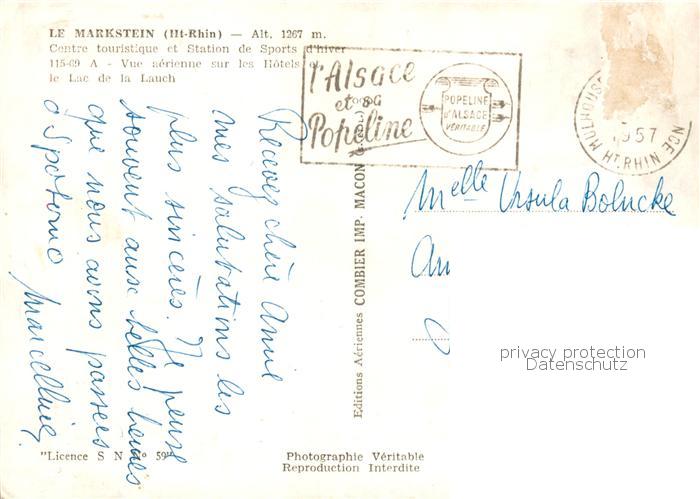 LE MARKSTEIN (Ht-Rhin) — Alt. 1267 m.
Centre touristique et Station de Sports d'hiver
115-69 A - Vue aérienne sur les Hôtels et
le Lac de la Lauch
l'Alsace
et sa
Popeline
POPELINE
D'ALSACE
VÉRITABLE
MULHOUSE
1957
HT RHIN
Recevez chère Annie
mes salutations les
plus sincères. Je pense
souvent aux belles heures
que nous avons passées
à Spotorno
Marcelline
Editions Aériennes COMBIER IMP. MACON
Melle Ursula Bolucke
privacy protection
Datenschutz
"Licence S N N° 59"
Photographie Véritable
Reproduction Interdite